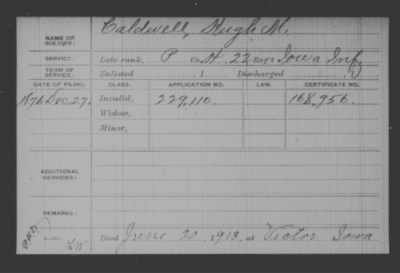 NAME OF SOLDIER: Caldwell, Hugh M.
SERVICE: Late rank, P Co. H, 22 Reg't Iowa Inf
TERM OF SERVICE: Enlisted , 1 Discharged
DATE OF FILING. CLASS. APPLICATION NO. LAW. CERTIFICATE NO.
1876 Dec. 27. Invalid, 229,110. 168,956.
Widow,
Minor,
ADDITIONAL SERVICES:
REMARKS:
Died June 20, 1913, at Victor Iowa